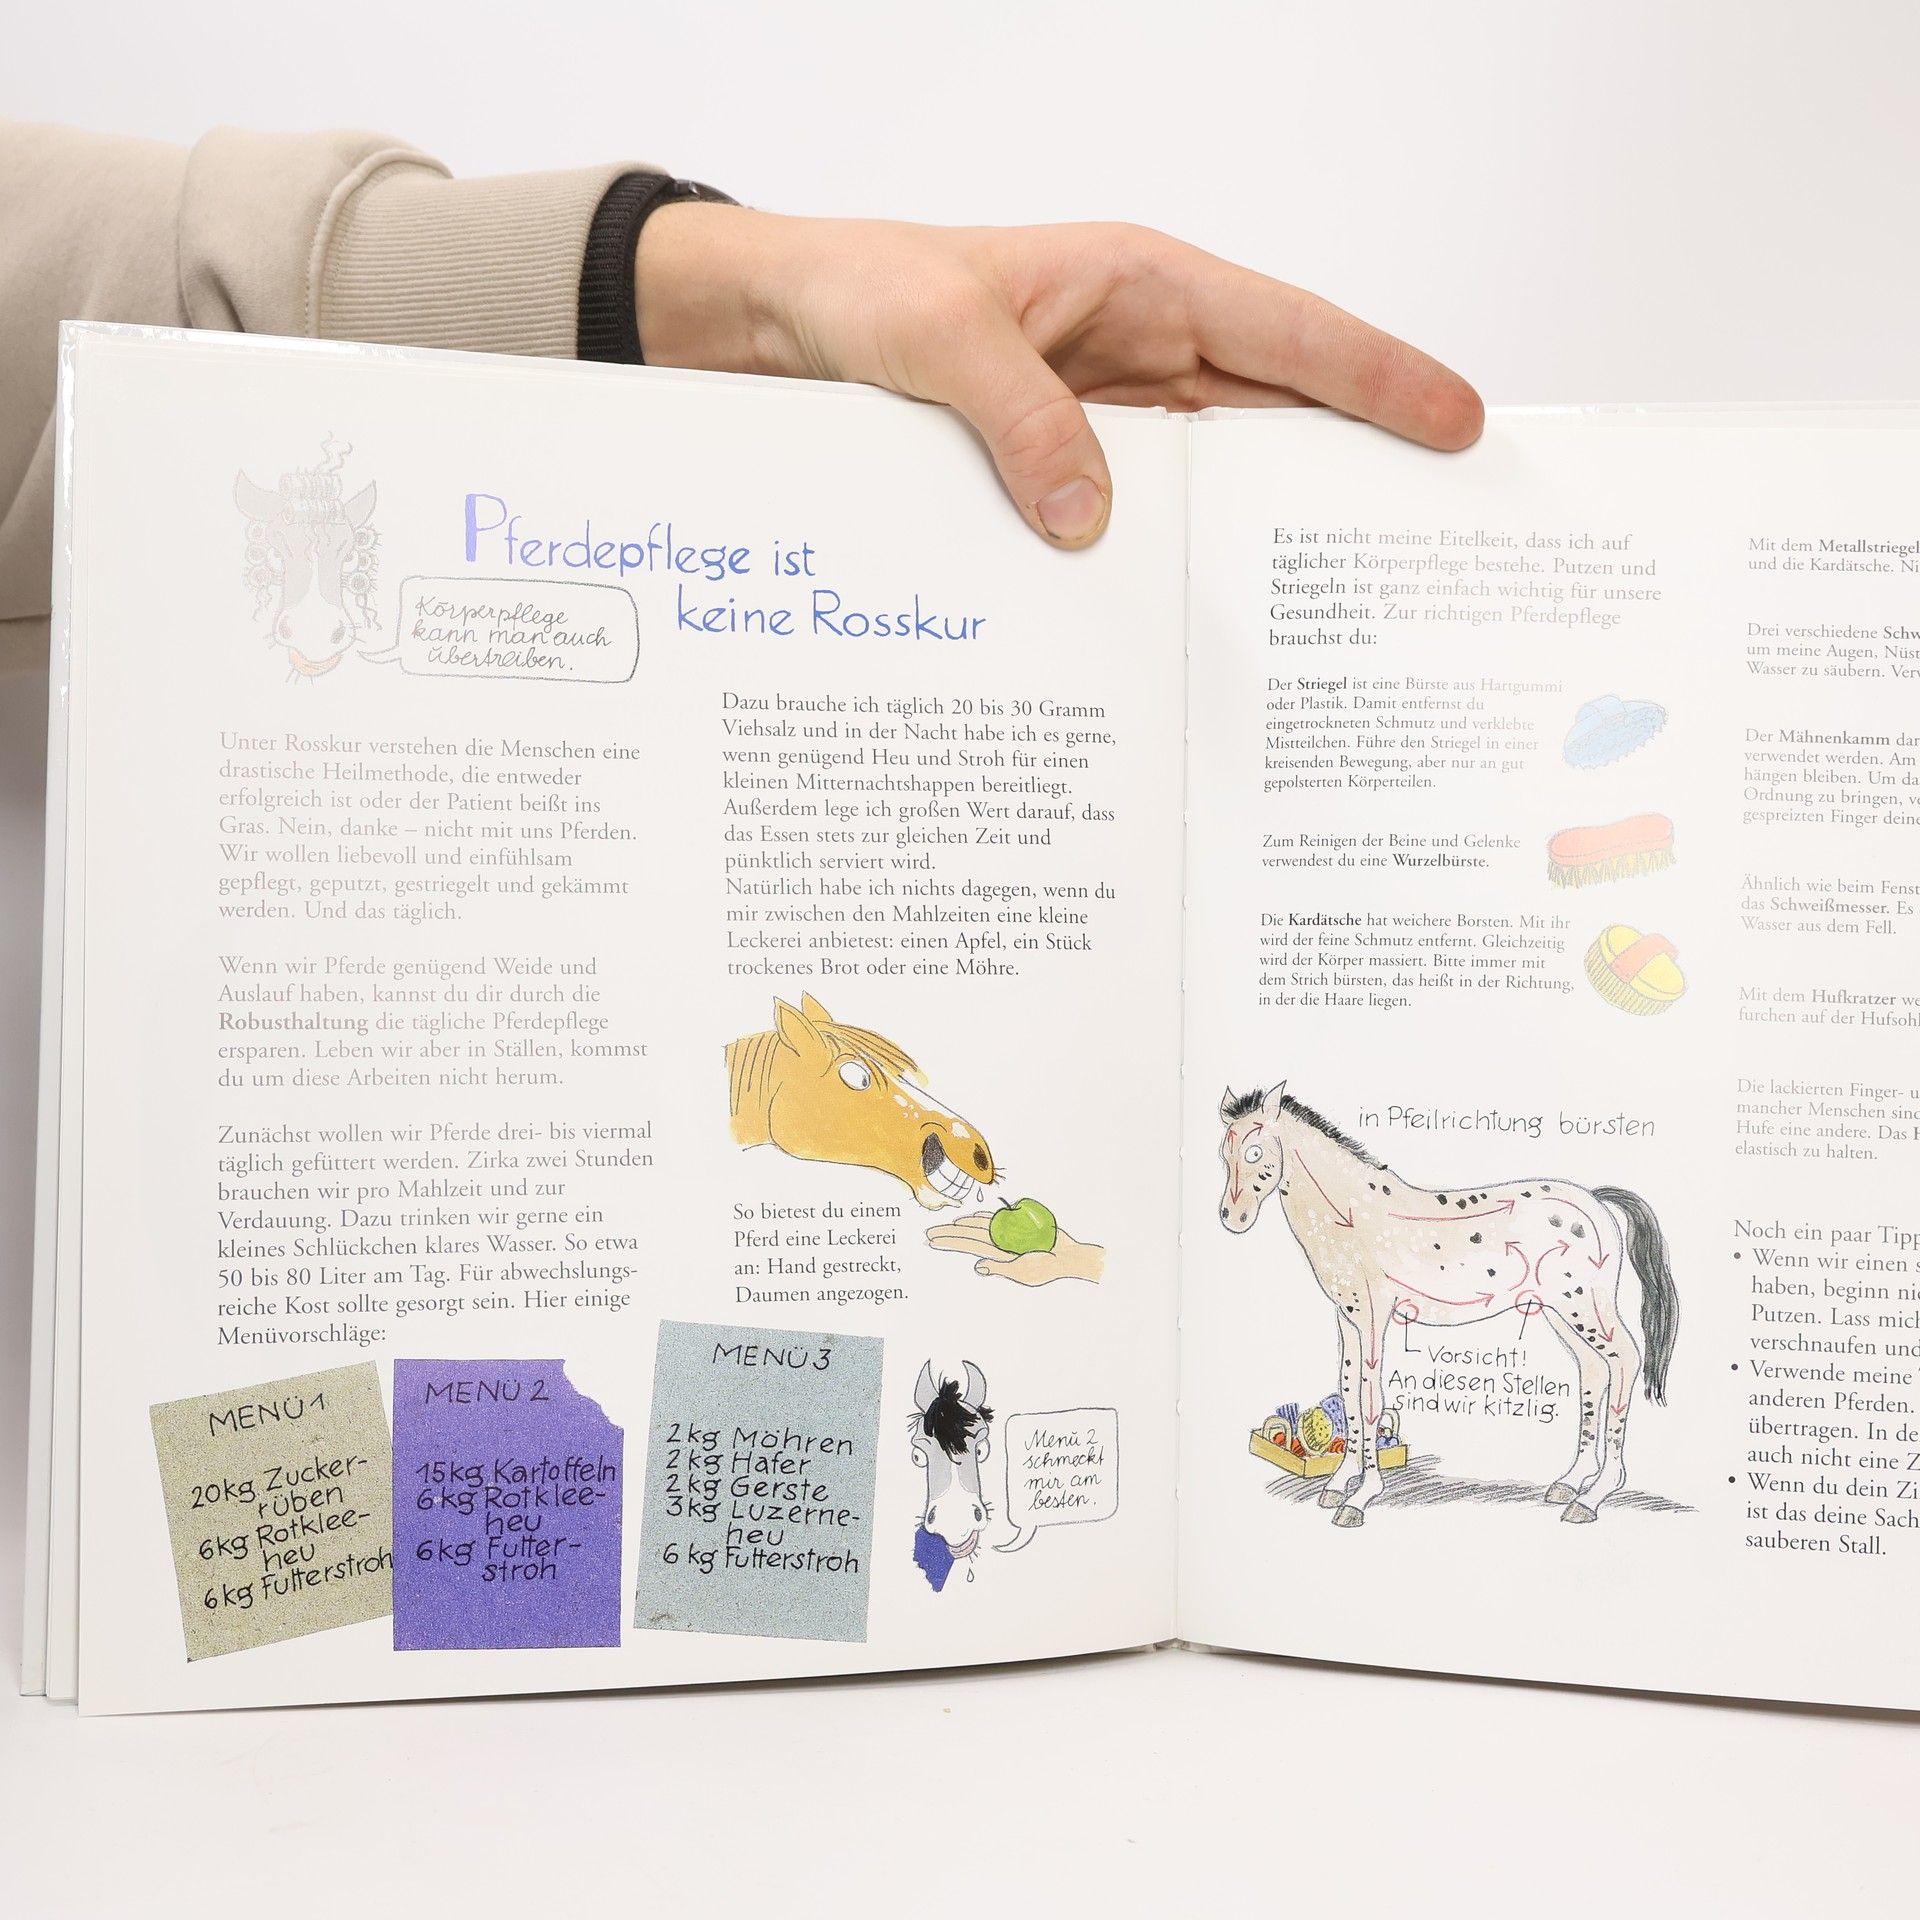 Pferdepflege ist
keine Rosskur
Körperpflege
kann man auch
übertreiben.
Unter Rosskur verstehen die Menschen eine
drastische Heilmethode, die entweder
erfolgreich ist oder der Patient beißt ins
Gras. Nein, danke – nicht mit uns Pferden.
Wir wollen liebevoll und einfühlsam
gepflegt, geputzt, gestriegelt und gekämmt
werden. Und das täglich.
Wenn wir Pferde genügend Weide und
Auslauf haben, kannst du dir durch die
Robusthaltung die tägliche Pferdepflege
ersparen. Leben wir aber in Ställen, kommst
du um diese Arbeiten nicht herum.
Zunächst wollen wir Pferde drei- bis viermal
täglich gefüttert werden. Zirka zwei Stunden
brauchen wir pro Mahlzeit und zur
Verdauung. Dazu trinken wir gerne ein
kleines Schlückchen klares Wasser. So etwa
50 bis 80 Liter am Tag. Für abwechslungs-
reiche Kost sollte gesorgt sein. Hier einige
Menüvorschläge:
MENÜ 1
20kg Zucker-
rüben
6kg Rotklee-
heu
6kg Futterstroh
MENÜ 2
15kg Kartoffeln
6kg Rotklee-
heu
6kg Futter-
stroh
MENÜ 3
2kg Möhren
2kg Hafer
2kg Gerste
3kg Luzerne-
heu
6 kg Futterstroh
Menü 2
schmeckt
mir am
besten.
Dazu brauche ich täglich 20 bis 30 Gramm
Viehsalz und in der Nacht habe ich es gerne,
wenn genügend Heu und Stroh für einen
kleinen Mitternachtshappen bereitliegt.
Außerdem lege ich großen Wert darauf, dass
das Essen stets zur gleichen Zeit und
pünktlich serviert wird.
Natürlich habe ich nichts dagegen, wenn du
mir zwischen den Mahlzeiten eine kleine
Leckerei anbietest: einen Apfel, ein Stück
trockenes Brot oder eine Möhre.
So bietest du einem
Pferd eine Leckerei
an: Hand gestreckt,
Daumen angezogen.
Es ist nicht meine Eitelkeit, dass ich auf
täglicher Körperpflege bestehe. Putzen und
Striegeln ist ganz einfach wichtig für unsere
Gesundheit. Zur richtigen Pferdepflege
brauchst du:
Der Striegel ist eine Bürste aus Hartgummi
oder Plastik. Damit entfernst du
eingetrockneten Schmutz und verklebte
Mistteilchen. Führe den Striegel in einer
kreisenden Bewegung, aber nur an gut
gepolsterten Körperteilen.
Zum Reinigen der Beine und Gelenke
verwendest du eine Wurzelbürste.
Die Kardätsche hat weichere Borsten. Mit ihr
wird der feine Schmutz entfernt. Gleichzeitig
wird der Körper massiert. Bitte immer mit
dem Strich bürsten, das heißt in der Richtung,
in der die Haare liegen.
in Pfeilrichtung bürsten
Vorsicht!
An diesen Stellen
sind wir kitzlig.
Mit dem Metallstriegel
und die Kardätsche.
Drei verschiedene
um meine Augen,
Wasser zu säubern.
Der Mähnenkamm
verwendet werden. Am
hängen bleiben. Um
Ordnung zu bringen,
gespreizten Finger
Ähnlich wie beim
das Schweißmesser. Es
Wasser aus dem Fell.
Mit dem Hufkratzer
furchen auf der
Die lackierten Finger-
mancher Menschen
Hufe eine andere. Das
elastisch zu halten.
Noch ein paar
• Wenn wir einen
haben, beginn
Putzen. Lass
verschnaufen
• Verwende meine
anderen Pferden.
übertragen. In
auch nicht eine
• Wenn du dein
ist das deine
sauberen Stall.